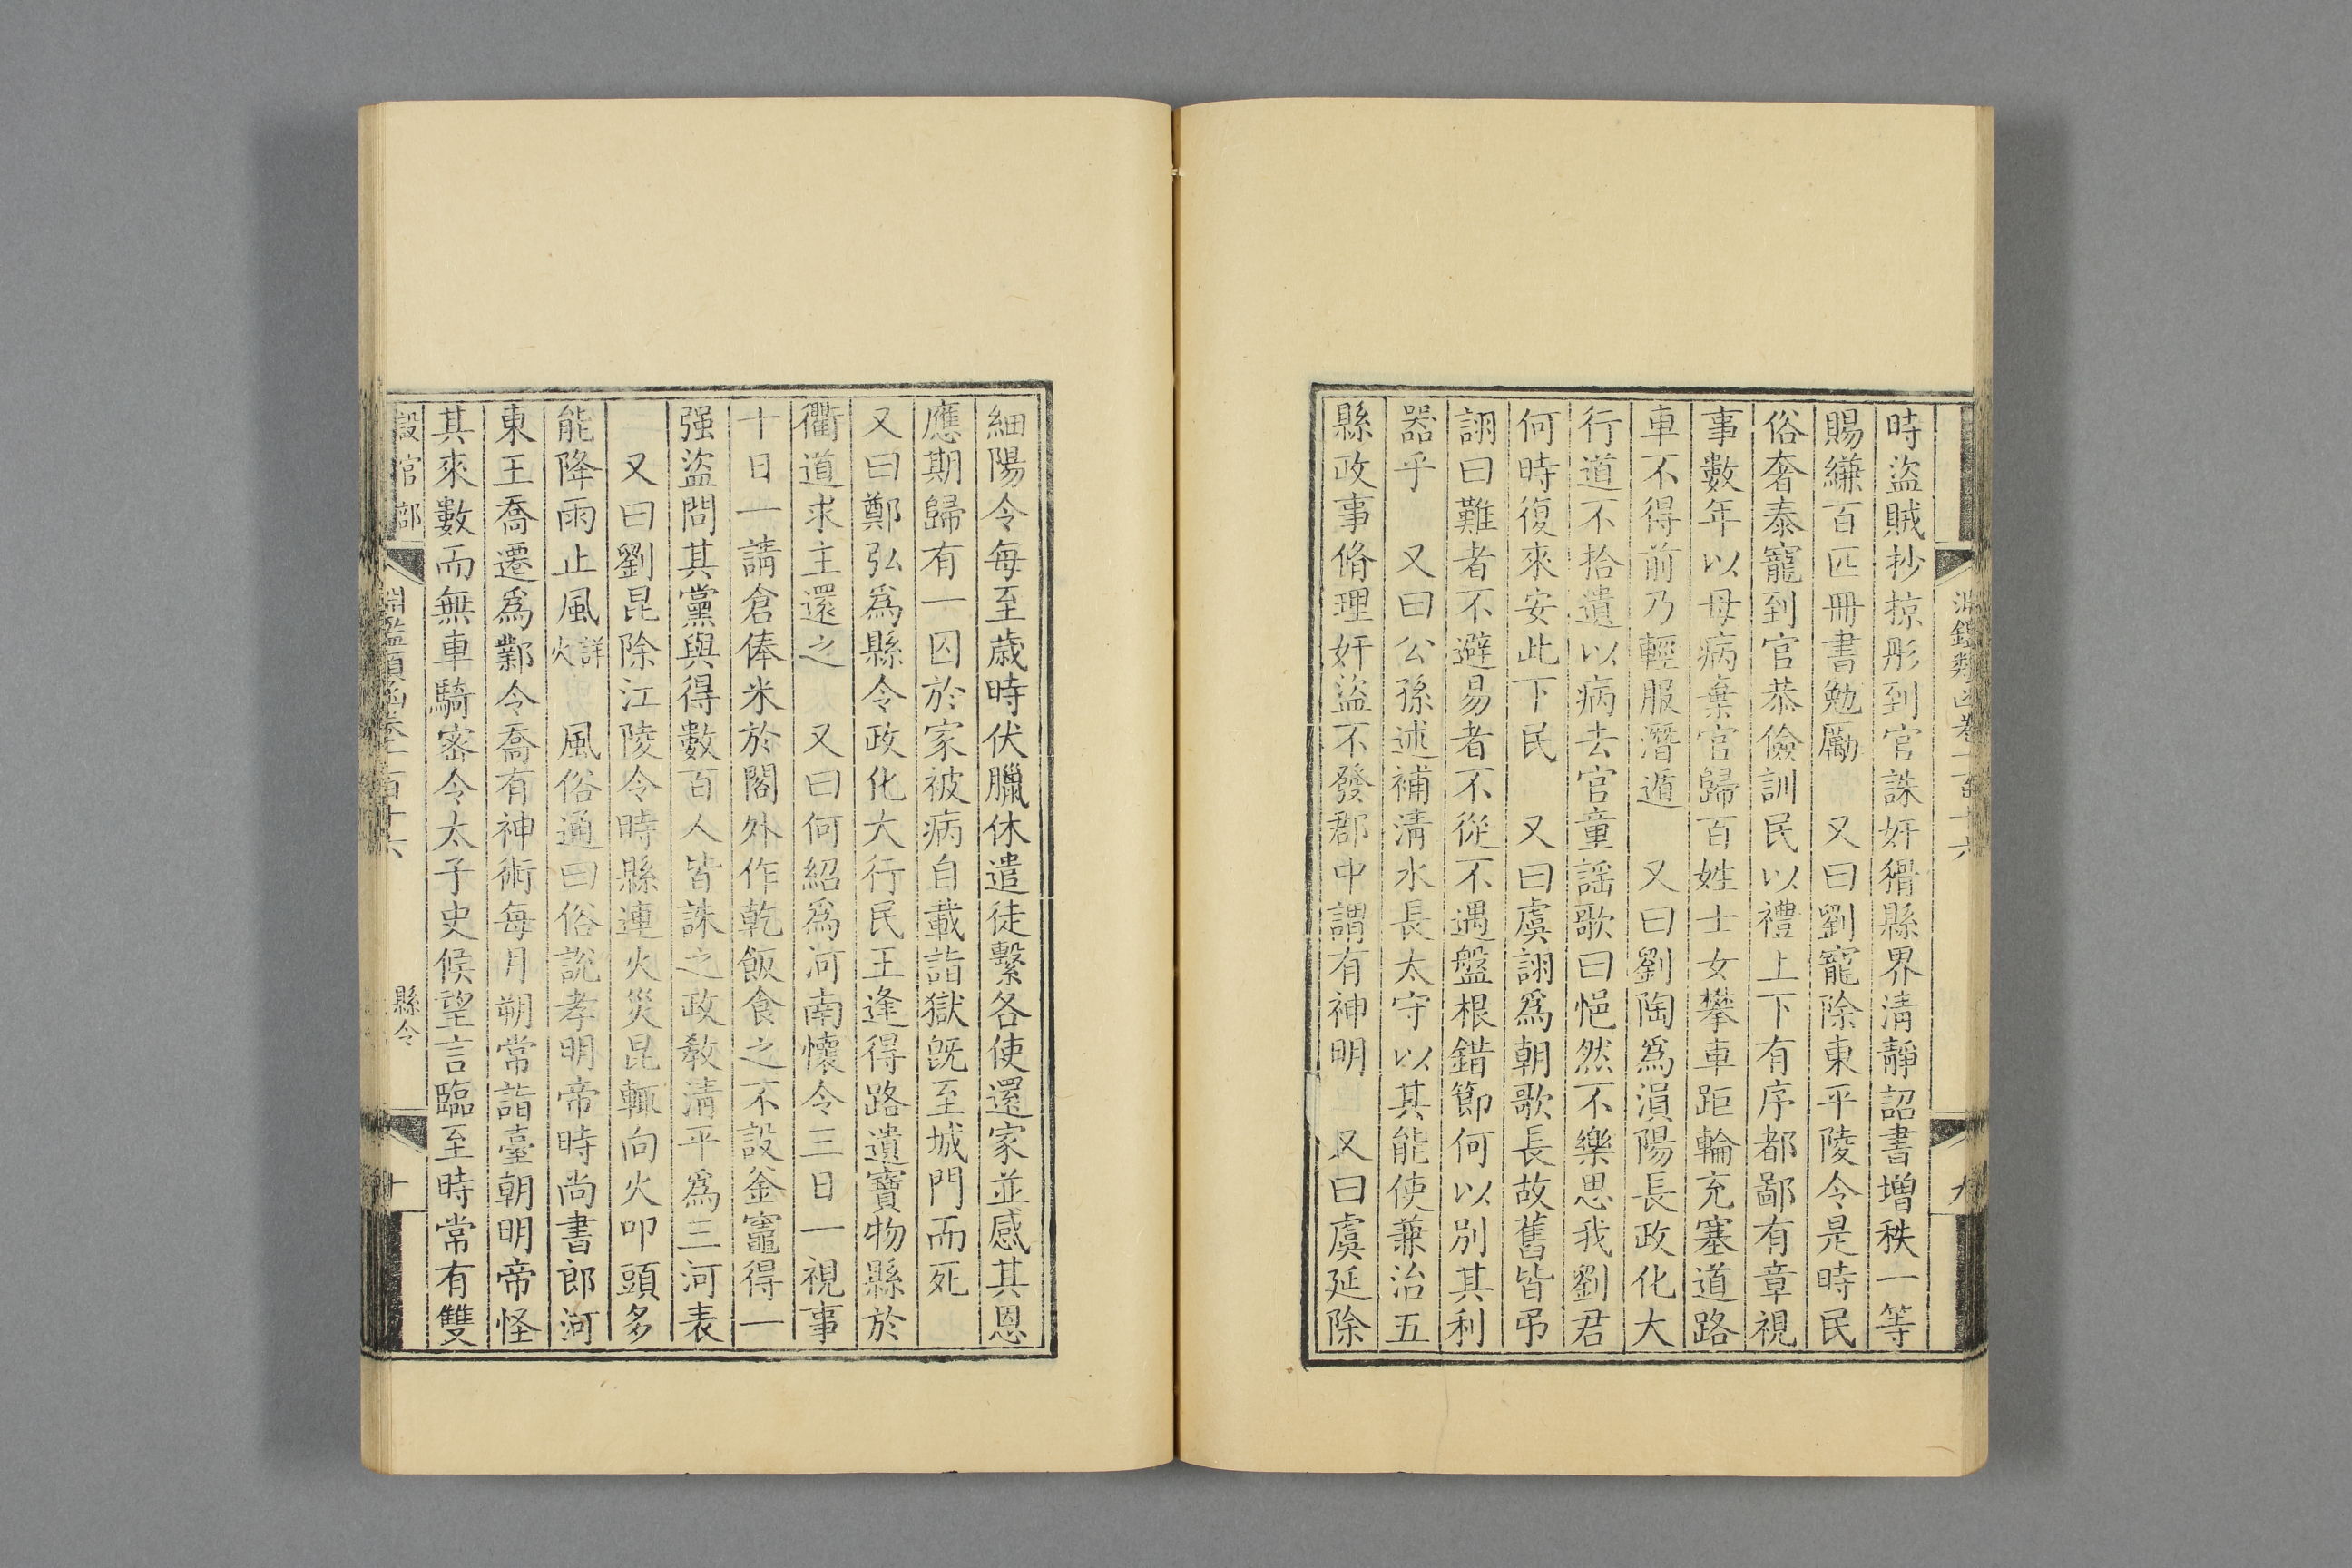 時盜賊抄掠彤到官誅奸猾縣界淸靜詔書增秩一等
賜縑百匹冊書勉勵　又曰劉寵除東平陵令是時民
俗奢泰寵到官恭儉訓民以禮上下有序都鄙有章視
事數年以母病棄官歸百姓士女攀車距輪充塞道路
車不得前乃輕服潛遁　又曰劉陶爲湏陽長政化大
行道不拾遺以病去官童謡歌曰悒然不樂思我劉君
何時復來安此下民　又曰虞詡爲朝歌長故舊皆弔
詡曰難者不避易者不從不遇盤根錯節何以別其利
器乎　又曰公孫述補淸水長太守以其能使兼治五
縣政事脩理奸盜不發郡中謂有神明　又曰虞延除
細陽令每至歲時伏臘休遣徒繫各使還家並感其恩
應期歸有一囚於家被病自載詣獄旣至城門而死
又曰鄭弘爲縣令政化大行民王逢得路遺寶物縣於
衢道求主還之　又曰何紹爲河南懷令三日一視事
十日一請倉俸米於閣外作乾飯食之不設釜竈得一
强盜問其黨與得數百人皆誅之政敎淸平爲三河表
又曰劉昆除江陵令時縣連火災昆輒向火叩頭多
能降雨止風詳火　風俗通曰俗說孝明帝時尚書郎河
東王喬遷爲鄴令喬有神術每月朔常詣臺朝明帝怪
其來數而無車騎密令太子史候望言臨至時常有雙
設官部　淵鑑類函卷一百十六　縣令　十